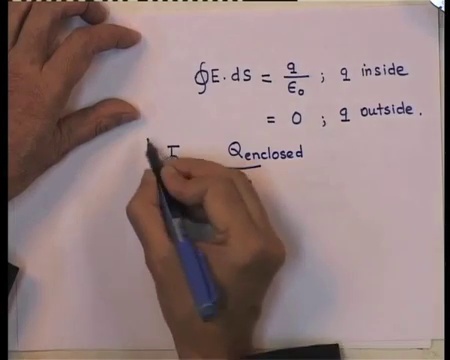 ∮E.ds = q/ε₀ ; q inside
= 0 ; q outside.
Qenclosed